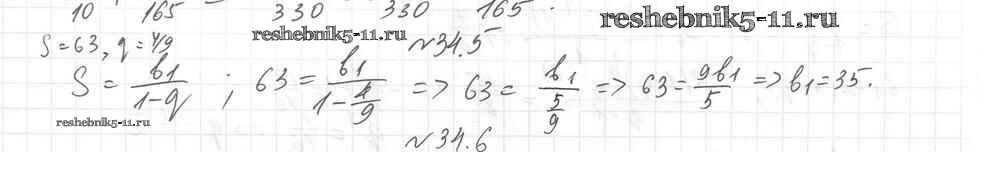 10 165 330 330 165 .
reshebnik5-11.ru
S=63, q=4/9 reshebnik5-11.ru №34.5
S = b1/(1-q) ; 63 = b1/(1-4/9) => 63 = b1/(5/9) => 63 = 9b1/5 => b1=35.
reshebnik5-11.ru
№34.6